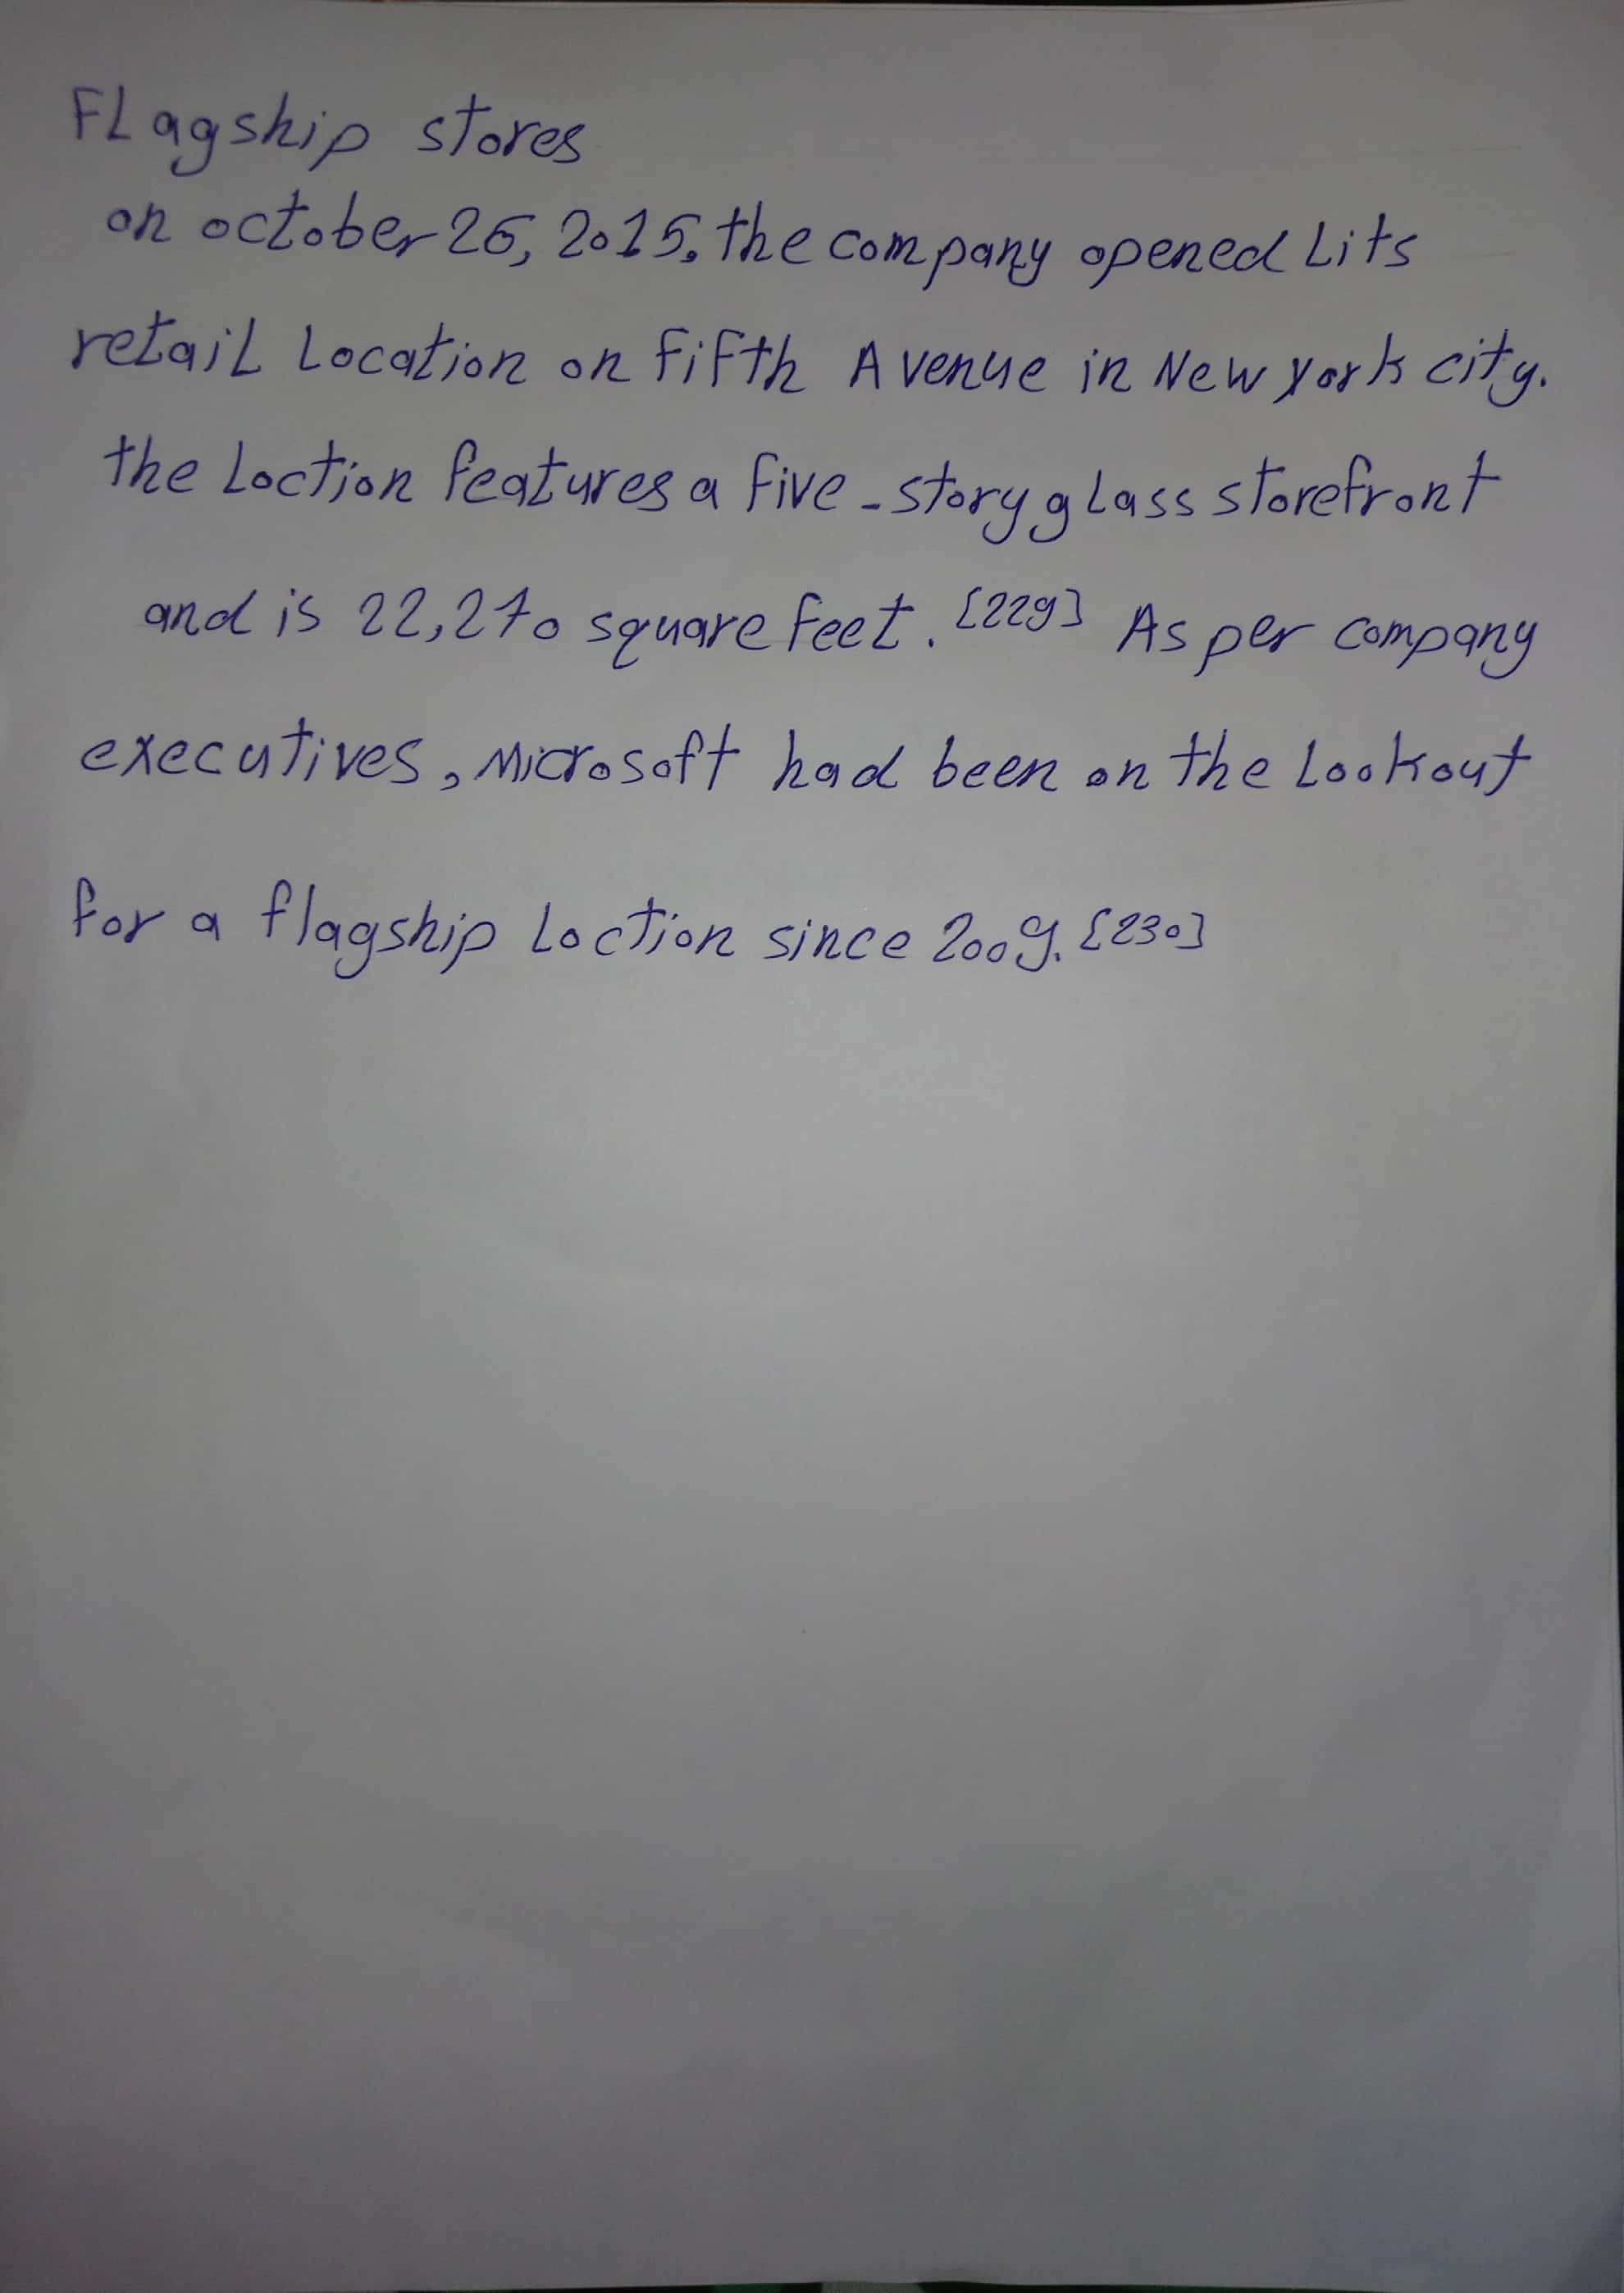 FLagship stores
on october 26, 2015. the company opened Lits
retail Location on fifth Avenue in New york city.
the Loction features a five-story glass storefront
and is 22,270 square feet. [229] As per company
executives, Microsoft had been on the Lookout
for a flagship Loction since 2009. [230]